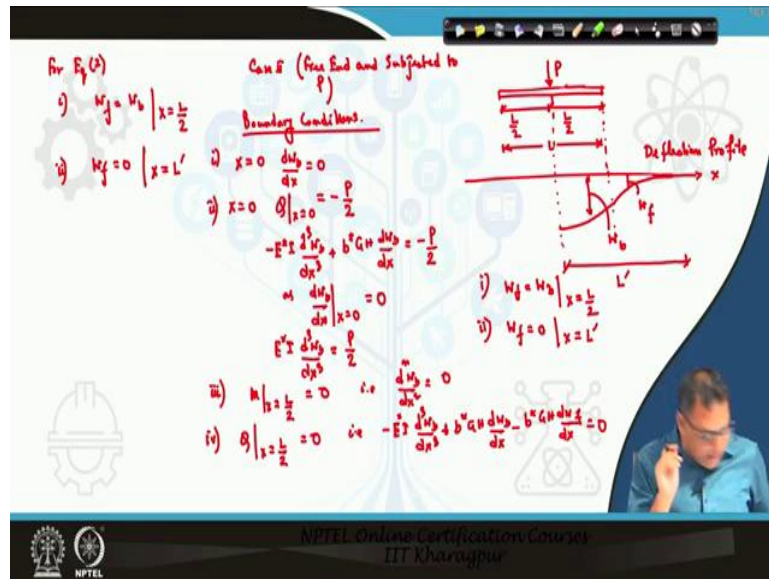 For Eq (2)
i) Wf = Wb | x = L/2
ii) Wf = 0 | x = L'
Case II (Free End and Subjected to P)
Boundary Conditions.
i) x=0 dWb/dx = 0
ii) x=0 Q|x=0 = -P/2
-E*I d³Wb/dx³ + b*GH dWb/dx = -P/2
as dWb/dx |x=0 = 0
E*I d³Wb/dx³ = P/2
iii) M|x=L/2 = 0 i.e d²Wb/dx² = 0
iv) Q|x=L/2 = 0 i.e -E*I d³Wb/dx³ + b*GH dWb/dx - b*GH dWf/dx = 0
P
L/2 L/2
L
Deflection Profile
x
Wf
Wb
L'
i) Wf = Wb | x = L/2
ii) Wf = 0 | x = L'
NPTEL Online Certification Courses
IIT Kharagpur
NPTEL